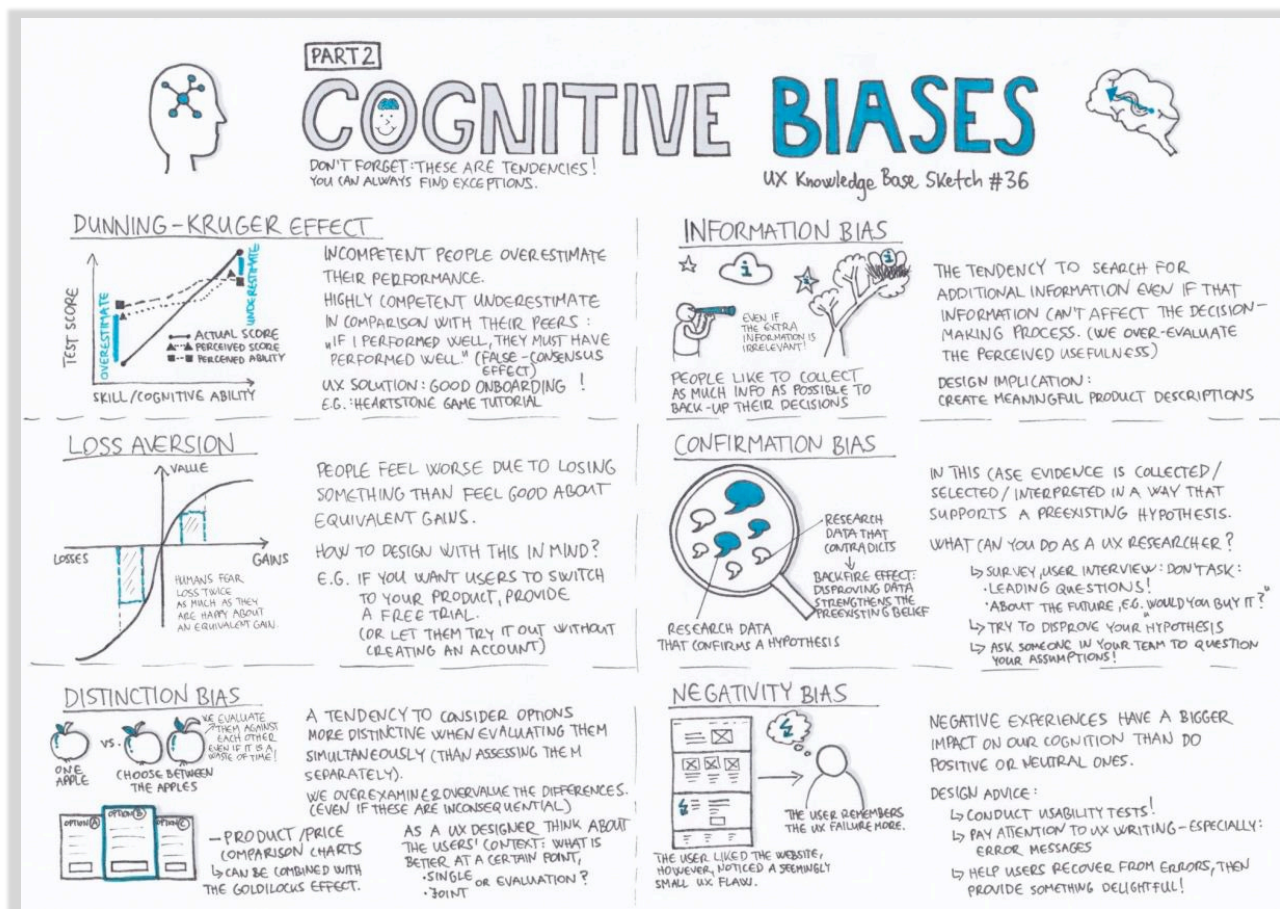 PART 2
COGNITIVE BIASES
DON'T FORGET: THESE ARE TENDENCIES!
YOU CAN ALWAYS FIND EXCEPTIONS.
UX Knowledge Base Sketch #36
DUNNING-KRUGER EFFECT
TEST SCORE
OVERESTIMATE
UNDERESTIMATE
ACTUAL SCORE
PERCEIVED SCORE
PERCEIVED ABILITY
SKILL/COGNITIVE ABILITY
INCOMPETENT PEOPLE OVERESTIMATE
THEIR PERFORMANCE.
HIGHLY COMPETENT UNDERESTIMATE
IN COMPARISON WITH THEIR PEERS:
"IF I PERFORMED WELL, THEY MUST HAVE
PERFORMED WELL." (FALSE-CONSENSUS
EFFECT)
UX SOLUTION: GOOD ONBOARDING!
E.G.: HEARTSTONE GAME TUTORIAL
LOSS AVERSION
VALUE
LOSSES
GAINS
HUMANS FEAR
LOSS TWICE
AS MUCH AS THEY
ARE HAPPY ABOUT
AN EQUIVALENT GAIN.
PEOPLE FEEL WORSE DUE TO LOSING
SOMETHING THAN FEEL GOOD ABOUT
EQUIVALENT GAINS.
HOW TO DESIGN WITH THIS IN MIND?
E.G. IF YOU WANT USERS TO SWITCH
TO YOUR PRODUCT, PROVIDE
A FREE TRIAL.
(OR LET THEM TRY IT OUT WITHOUT
CREATING AN ACCOUNT)
DISTINCTION BIAS
VS.
ONE
APPLE
CHOOSE BETWEEN
THE APPLES
WE EVALUATE
THEM AGAINST
EACH OTHER
EVEN IF IT IS A
WASTE OF TIME!
OPTION A
OPTION B
OPTION C
- PRODUCT/PRICE
COMPARISON CHARTS
↳ CAN BE COMBINED WITH
THE GOLDILOCKS EFFECT.
A TENDENCY TO CONSIDER OPTIONS
MORE DISTINCTIVE WHEN EVALUATING THEM
SIMULTANEOUSLY (THAN ASSESSING THEM
SEPARATELY).
WE OVEREXAMINE & OVERVALUE THE DIFFERENCES.
(EVEN IF THESE ARE INCONSEQUENTIAL)
AS A UX DESIGNER THINK ABOUT
THE USERS' CONTEXT: WHAT IS
BETTER AT A CERTAIN POINT,
• SINGLE
OR EVALUATION?
• JOINT
INFORMATION BIAS
i
i
EVEN IF
THE EXTRA
INFORMATION IS
IRRELEVANT!
PEOPLE LIKE TO COLLECT
AS MUCH INFO AS POSSIBLE TO
BACK-UP THEIR DECISIONS
THE TENDENCY TO SEARCH FOR
ADDITIONAL INFORMATION EVEN IF THAT
INFORMATION CAN'T AFFECT THE DECISION-
MAKING PROCESS. (WE OVER-EVALUATE
THE PERCEIVED USEFULNESS)
DESIGN IMPLICATION:
CREATE MEANINGFUL PRODUCT DESCRIPTIONS
CONFIRMATION BIAS
RESEARCH
DATA THAT
CONTRADICTS
BACKFIRE EFFECT:
DISPROVING DATA
STRENGTHENS THE
PREEXISTING BELIEF
RESEARCH DATA
THAT CONFIRMS A HYPOTHESIS
IN THIS CASE EVIDENCE IS COLLECTED/
SELECTED/INTERPRETED IN A WAY THAT
SUPPORTS A PREEXISTING HYPOTHESIS.
WHAT CAN YOU DO AS A UX RESEARCHER?
↳ SURVEY, USER INTERVIEW: DON'T ASK:
• LEADING QUESTIONS!
• ABOUT THE FUTURE, E.G. "WOULD YOU BUY IT?"
↳ TRY TO DISPROVE YOUR HYPOTHESIS
↳ ASK SOMEONE IN YOUR TEAM TO QUESTION
YOUR ASSUMPTIONS!
NEGATIVITY BIAS
THE USER REMEMBERS
THE UX FAILURE MORE.
THE USER LIKED THE WEBSITE,
HOWEVER, NOTICED A SEEMINGLY
SMALL UX FLAW.
NEGATIVE EXPERIENCES HAVE A BIGGER
IMPACT ON OUR COGNITION THAN DO
POSITIVE OR NEUTRAL ONES.
DESIGN ADVICE:
↳ CONDUCT USABILITY TESTS!
↳ PAY ATTENTION TO UX WRITING-ESPECIALLY:
ERROR MESSAGES
↳ HELP USERS RECOVER FROM ERRORS, THEN
PROVIDE SOMETHING DELIGHTFUL!